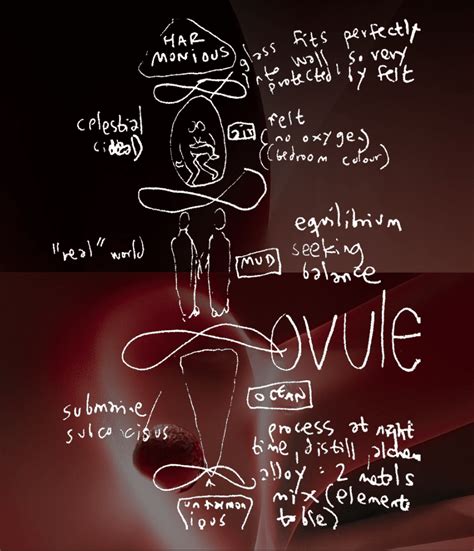 HAR
MONIOUS
glass fits perfectly
into wall is so very
protected by felt
celestial
felt
(no oxygen)
(bedroom colour)
AIR
"real" world
MUD
equilibrium
seeking
balance
OVULE
OCEAN
submarine/
subconscious
process at night
time, distill, alchem
alloy = 2 metals
mix (element
table)
unharmon
ious